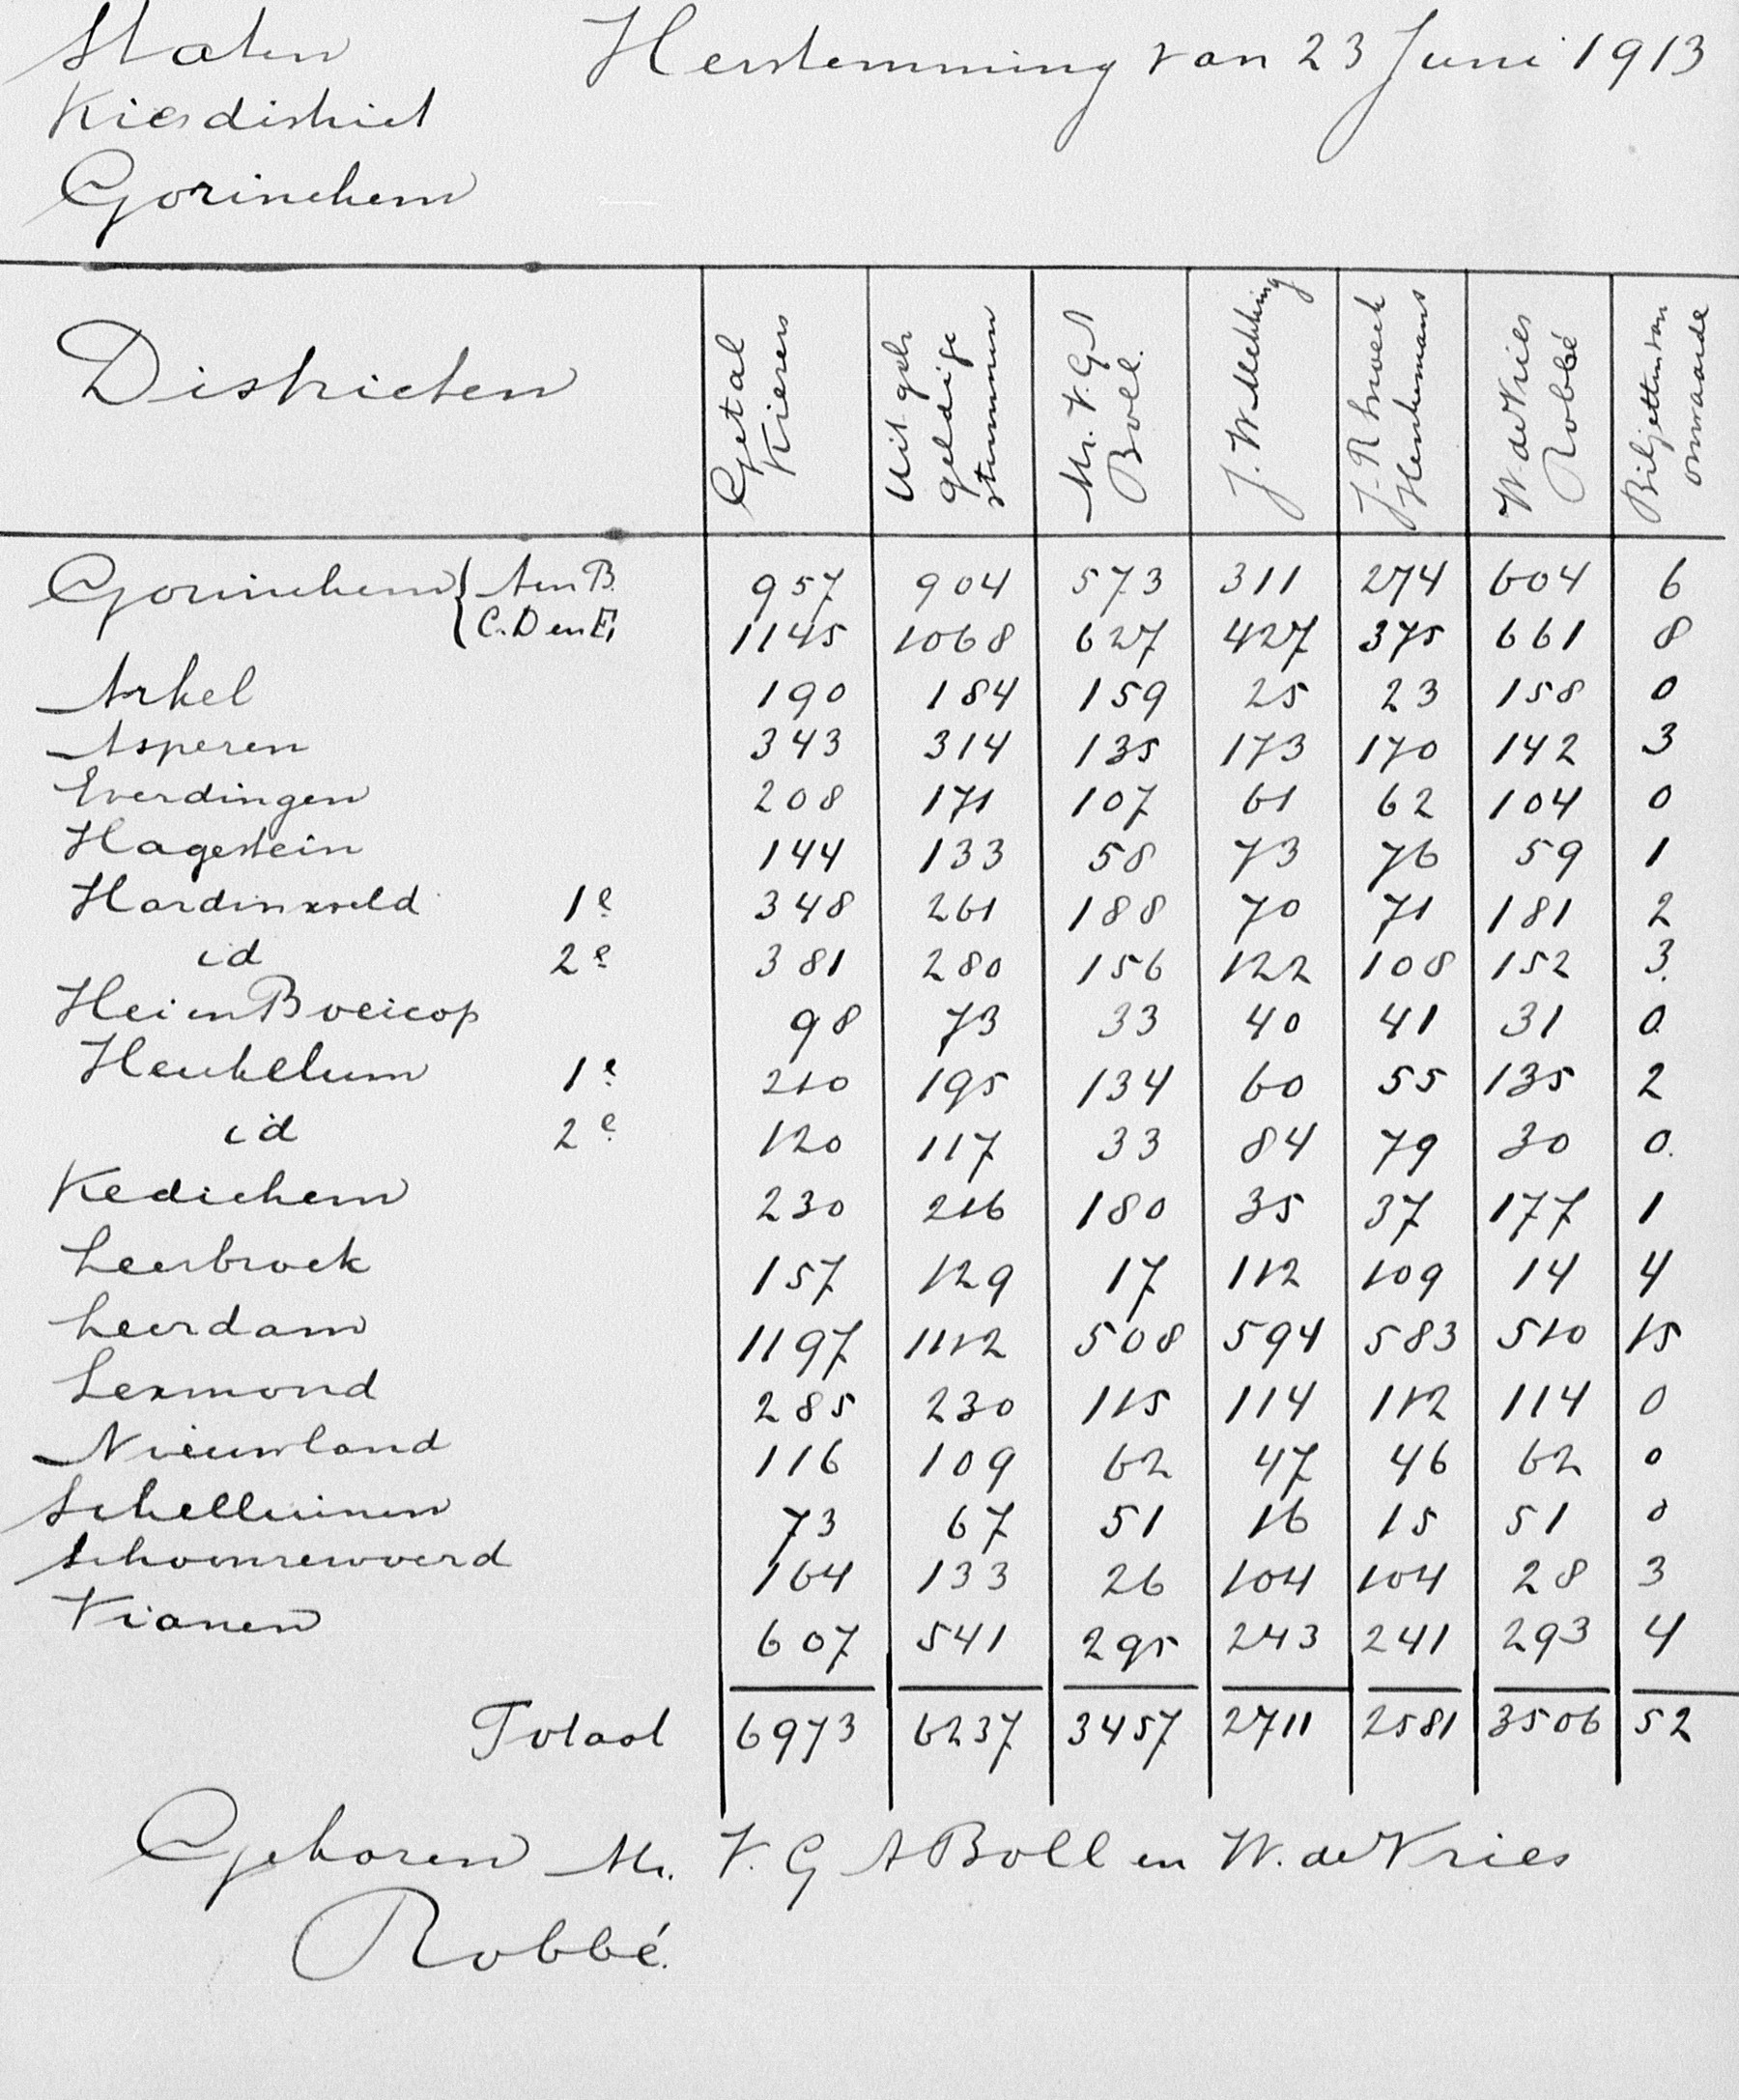 Staten Herstemming van 23 Juni 1913
Kiesdistrict
Gorinchem
Districten
Getal Kiezers
Uit geb. geldige stemmen
Mr. V. G. A Boll.
J. W Mekking
J. R Snoeck Henkemans
W. de Vries Robbé
Biljetten van onwaarde
Gorinchem { A en B. 957 904 573 311 274 604 6
C. D en E, 1145 1068 627 427 375 661 8
Arkel 190 184 159 25 23 158 0
Asperen 343 314 135 173 170 142 3
Everdingen 208 171 107 61 62 104 0
Hagestein 144 133 58 73 76 59 1
Hardinxveld 1e 348 261 188 70 71 181 2
id 2e 381 280 156 122 108 152 3.
Hei en Boeicop 98 73 33 40 41 31 0.
Heukelum 1e 210 195 134 60 55 135 2
id 2e 120 117 33 84 79 30 0.
Kedichem 230 216 180 35 37 177 1
Leerbroek 157 129 17 112 109 14 4
Leerdam 1197 1112 508 594 583 510 15
Lexmond 285 230 115 114 112 114 0
Nieuwland 116 109 62 47 46 62 0
Schelluinen 73 67 51 16 15 51 0
Schoonrewoerd 164 133 26 104 104 28 3
Vianen 607 541 295 243 241 293 4
Totaal 6973 6237 3457 2711 2581 3506 52
Gekozen Mr. V. G A Boll en W. de Vries
Robbé.